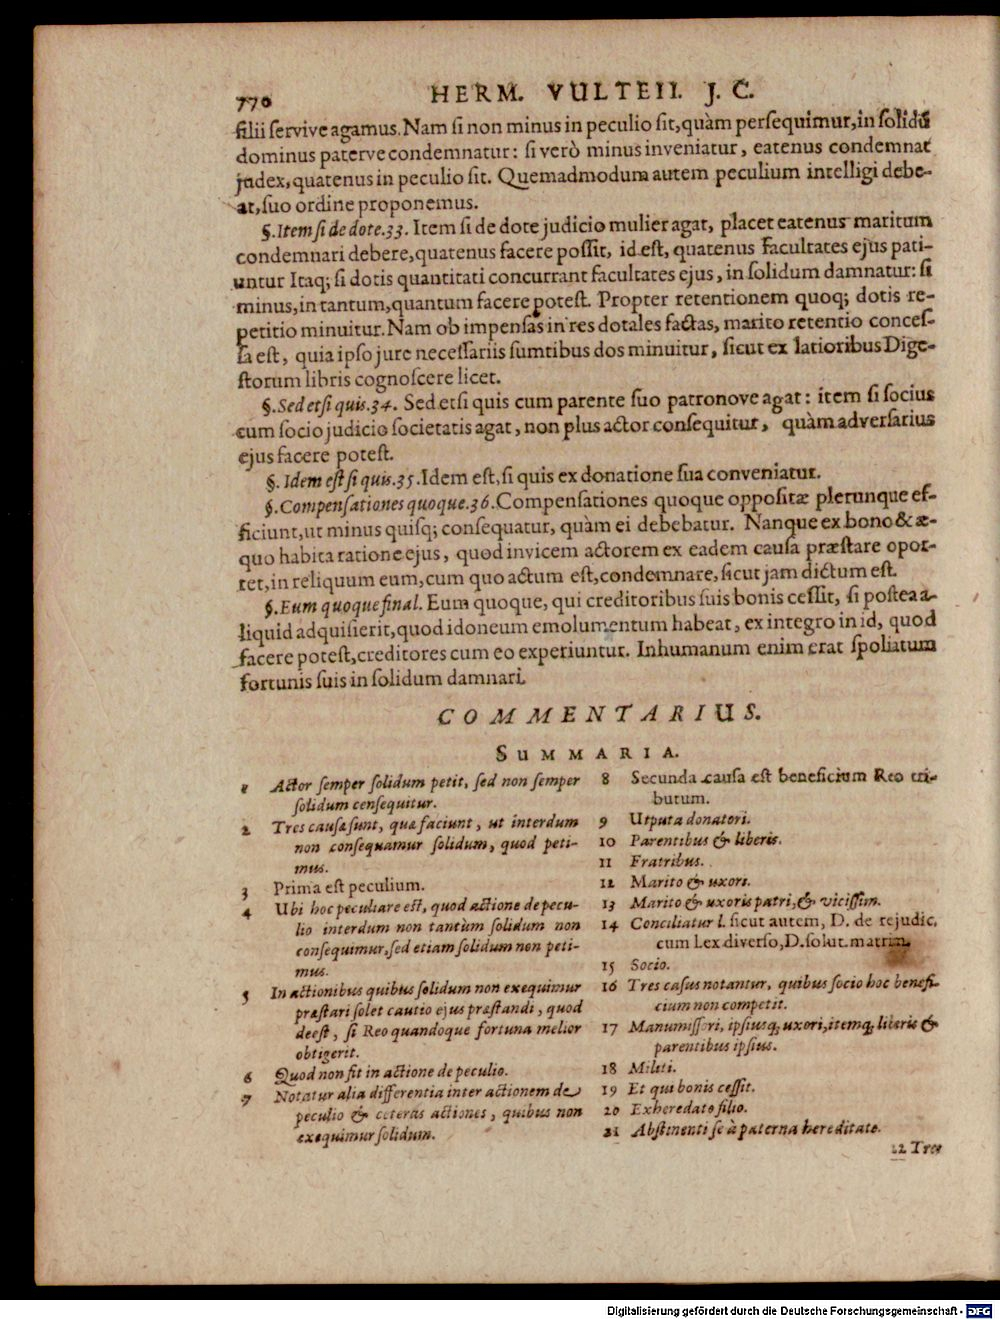 770 HERM. VULTEII. J. C.
filii servive agamus. Nam si non minus in peculio sit, quàm persequimur, in solidũ
dominus paterve condemnatur: si verò minus inveniatur, eatenus condemnat
judex, quatenus in peculio sit. Quemadmodum autem peculium intelligi debe-
at, suo ordine proponemus.
§. Item si de dote. 33. Item si de dote judicio mulier agat, placet eatenus maritum
condemnari debere, quatenus facere possit, id est, quatenus facultates ejus pati-
untur Itaq; si dotis quantitati concurrant facultates ejus, in solidum damnatur: si
minus, in tantum, quantum facere potest. Propter retentionem quoq; dotis re-
petitio minuitur. Nam ob impensas in res dotales factas, marito retentio conces-
sa est, quia ipso jure necessariis sumtibus dos minuitur, sicut ex latioribus Dige-
storum libris cognoscere licet.
§. Sed etsi quis. 34. Sed etsi quis cum parente suo patronove agat: item si socius
cum socio judicio societatis agat, non plus actor consequitur, quàm adversarius
ejus facere potest.
§. Idem est si quis. 35. Idem est, si quis ex donatione sua conveniatur.
§. Compensationes quoque. 36. Compensationes quoque oppositæ plerunque ef-
ficiunt, ut minus quisq; consequatur, quàm ei debebatur. Nanque ex bono & æ-
quo habita ratione ejus, quod invicem actorem ex eadem causa præstare opor-
tet, in reliquum eum, cum quo actum est, condemnare, sicut jam dictum est.
§. Eum quoque final. Eum quoque, qui creditoribus suis bonis cessit, si postea a-
liquid adquisierit, quod idoneum emolumentum habeat, ex integro in id, quod
facere potest, creditores cum eo experiuntur. Inhumanum enim erat spoliatum
fortunis suis in solidum damnari.
COMMENTARIUS.
SUMMARIA.
1 Actor semper solidum petit, sed non semper
solidum censequitur.
2 Tres causæ sunt, quæ faciunt, ut interdum
non consequamur solidum, quod peti-
mus.
3 Prima est peculium.
4 Ubi hoc peculiare est, quod actione de pecu-
lio interdum non tantùm solidum non
consequimur, sed etiam solidum non peti-
mus.
5 In actionibus quibus solidum non exequimur
præstari solet cautio ejus præstandi, quod
deest, si Reo quandoque fortuna melior
obtigerit.
6 Quod non fit in actione de peculio.
7 Notatur alia differentia inter actionem de
peculio & ceteras actiones, quibus non
exequimur solidum.
8 Secunda causa est beneficium Reo tri-
butum.
9 Utputa donatori.
10 Parentibus & liberis.
11 Fratribus.
12 Marito & uxori.
13 Marito & uxoris patri, & vicissim.
14 Conciliatur l. sicut autem, D. de re judic.
cum Lex diverso, D. solut. matrim.
15 Socio.
16 Tres casus notantur, quibus socio hoc benefi-
cium non competit.
17 Manumissori, ipsiusq; uxori, itemq; liberis &
parentibus ipsius.
18 Militi.
19 Et qui bonis cessit.
20 Exheredato filio.
21 Abstinenti se à paterna hereditate.
22 Tres
Digitalisierung gefördert durch die Deutsche Forschungsgemeinschaft - DFG